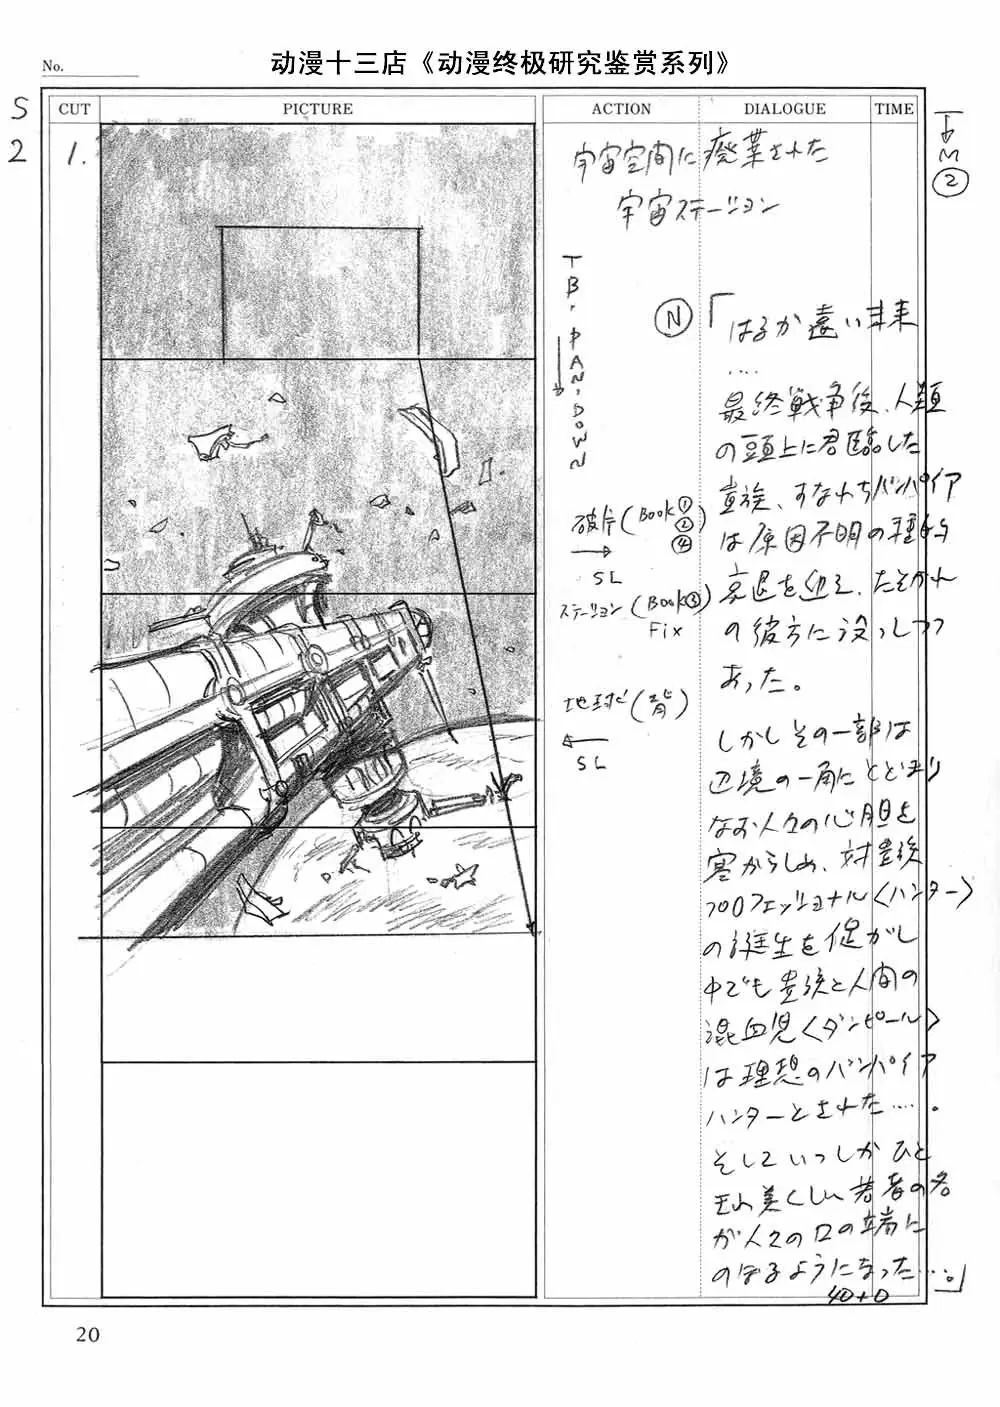 动漫十三店《动漫终极研究鉴赏系列》
No.
CUT PICTURE ACTION DIALOGUE TIME
S
2 1.
M
②
宇宙空間に廃棄された
宇宙ステーション
T.B. PAN-DOWN
破片(Book①
②
④)
→
SL
ステーション(Book③)
Fix
地球(背)
←
SL
Ⓝ「はるか遠い未来
‥‥
最終戦争後、人類
の頭上に君臨した
貴族、すなわちバンパイア
は原因不明の種的
衰退を迎え、たそがれ
の彼方に没しつつ
あった。
しかしその一部は
辺境の一角にとどまり
なお人々の心胆を
寒からしめ、対貴族
プロフェッショナル〈ハンター〉
の誕生を促がし
中でも貴族と人間の
混血児〈ダンピール〉
は理想のバンパイア
ハンターとされた‥‥。
そしていつしかひと
きわ美くしい若者の名
が人々の口の端に
のぼるようになった‥‥。」
40+0
20